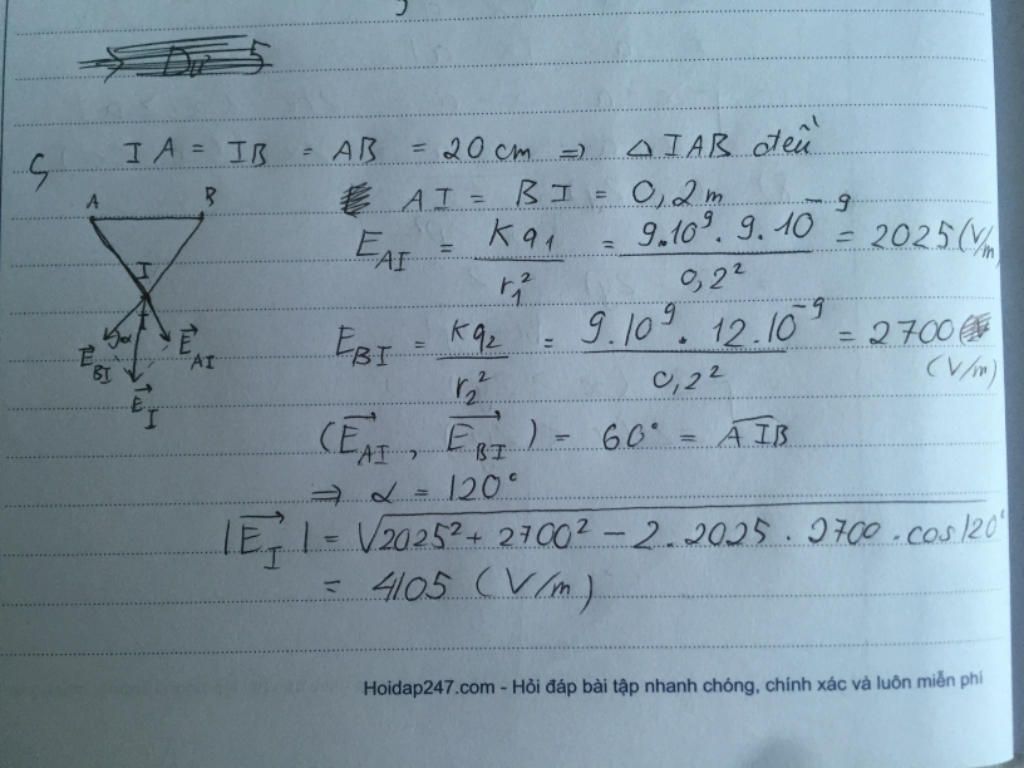 IA = IB = AB = 20 cm => Δ IAB đều
5
A B
AI = BI = 0,2 m
E_AI = Kq1 / r1² = 9.10⁹ . 9.10⁻⁹ / 0,2² = 2025 (V/m)
I
α
E_BI E_AI
E_I
E_BI = Kq2 / r2² = 9.10⁹ . 12.10⁻⁹ / 0,2² = 2700 (V/m)
(E_AI , E_BI) = 60° = AIB
=> α = 120°
|E_I| = √2025² + 2700² - 2.2025.2700.cos120°
= 4105 (V/m)
Hoidap247.com - Hỏi đáp bài tập nhanh chóng, chính xác và luôn miễn phí